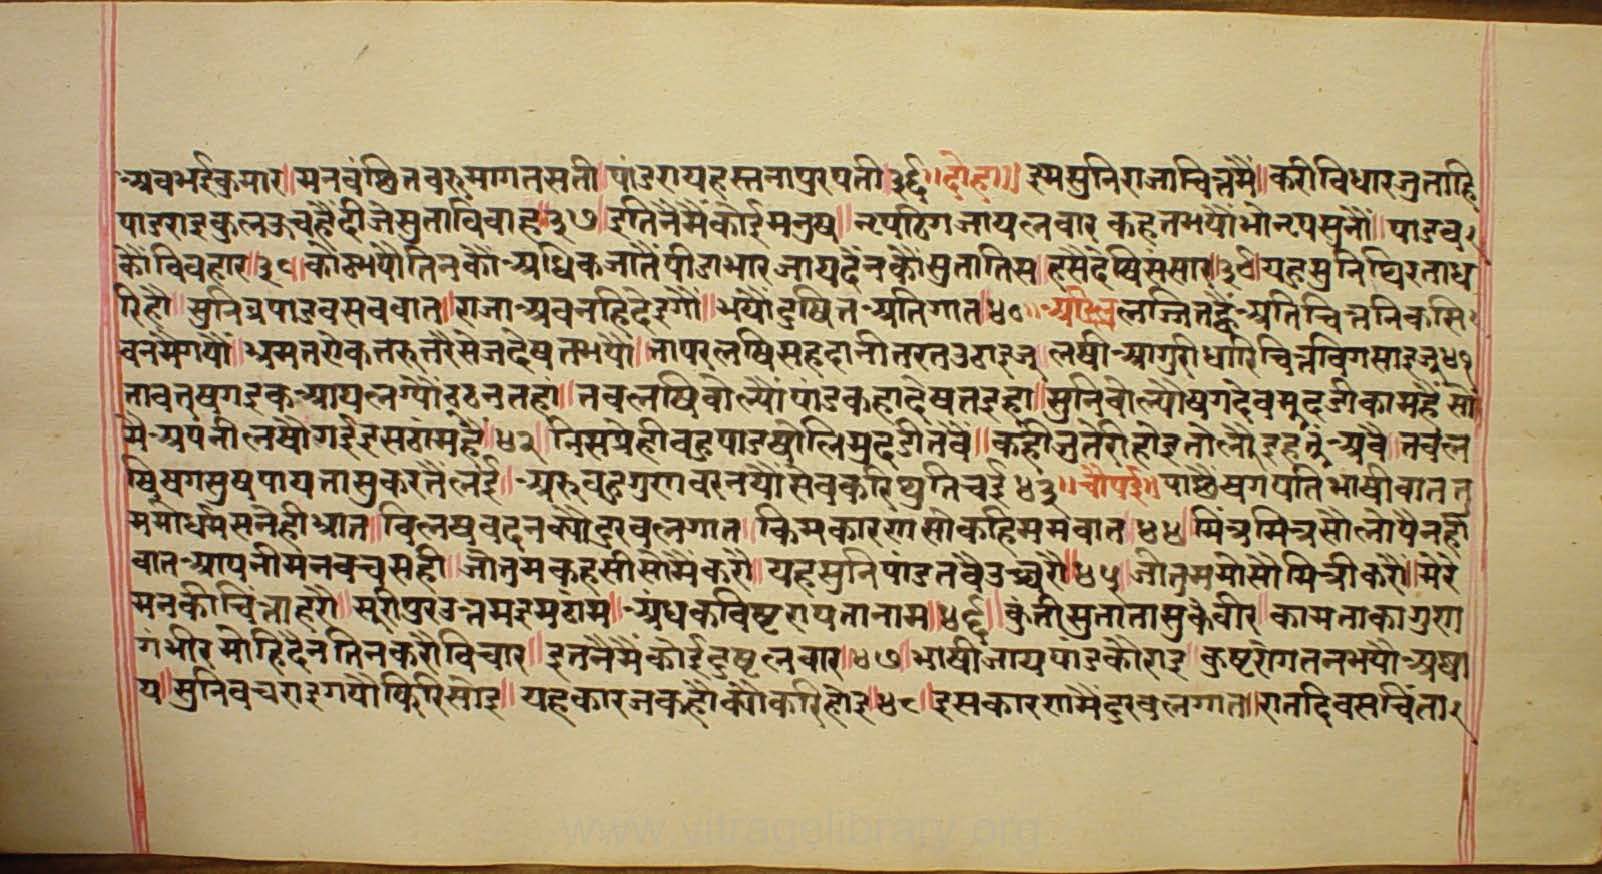 अबभईकुमार॥मनबंछितबरुमागतसती॥पांडरायहस्तनापुरपती॥३६॥दोहा॥इमसुनिराजाचित्तमैं॥करीविधारजुताहि
पांडराइकुलऊचहैंदीजेसुताविवाह॥३७॥इतिनैमैंकोईमनुष॥नृपढिगजायलबार॥कहतभयौभोनृपसुनौं॥पांडव
कौंविवहार॥३८॥कोढभयौतिनकौंअधिकजातैंपीडाभारजायदैंनकौंसुतातिस॥हसैंदेषिसंसार॥३९॥यहसुनिथिरताध
रिहौं॥सुनिद्रपांडवसबबात॥राजाअबनहिदेइगौं॥भयौंदुषितअतिगात॥४०॥अडिल्ल॥लज्जितह्वैअतिचित्तनिकसि
बनमैंगयौं॥भ्रमतसेकतरुतरैंसेजदेषतभयौं॥तापरलषिसहदानीतरतउठाइजु॥लषीआगुरीधारिचित्तबिगसाइजु४१
तावतषगइकआयलग्यौंढूढनतहा॥तबलषिबोल्यौंपांडकहादेषतइहां॥सुनिबोल्यौंषगदेवमुदडीकामहैंसो
मैंअपनीलषौंगईइसठांमहैं॥४२॥तिसपैहीवहपांडषोलिमुदडीतबैं॥कहीजुतेरीहोइतोल्यौइहतुंअबैं॥तबल
षिषगसुषपायतासुकरतैंलई॥अरुबहुगुणवरनयौंसबकरिथुतिचई४३॥चौपई॥पाछैषगपतिभाषीबाततू
ममोधर्मसनेहीभ्रात॥विलषवदनक्यौंदूरवलगात॥किमकारणसोकहिममबात॥४४॥मित्रमित्रसौंलोपैनही
बातआपनीमनबचसही॥जोतुमकुहसीसोमैंकरौं॥यहसुनिपांडतबैउच्चरौं॥४५॥जोतुममोसौंमित्रीकरौं॥मेरे
मनकीचिंताहरौ॥सूरीपुरउत्तमइमठांम॥अंधकविष्टरापतानाम॥४६॥कुंतीसुतातासुकेवीर॥कामलताकागुण
गभीरमोहिदैनतिनकरौविचार॥इतनैमैंकोईदुष्टलबार॥४७॥भाषीजायपांडकौराइ॥कुष्टरोगतनभयौअघा
य॥सुनिबचराइगयौफिरिसोइ॥यहकारजकहौक्यौकरिहोइ॥४८॥इसकारणमैंदुरबलगात॥रातदिवसचिंता